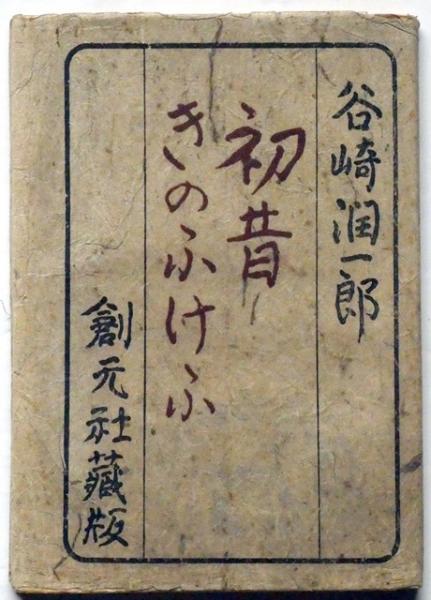 谷崎潤一郎
初昔
きのふけふ
創元社蔵版